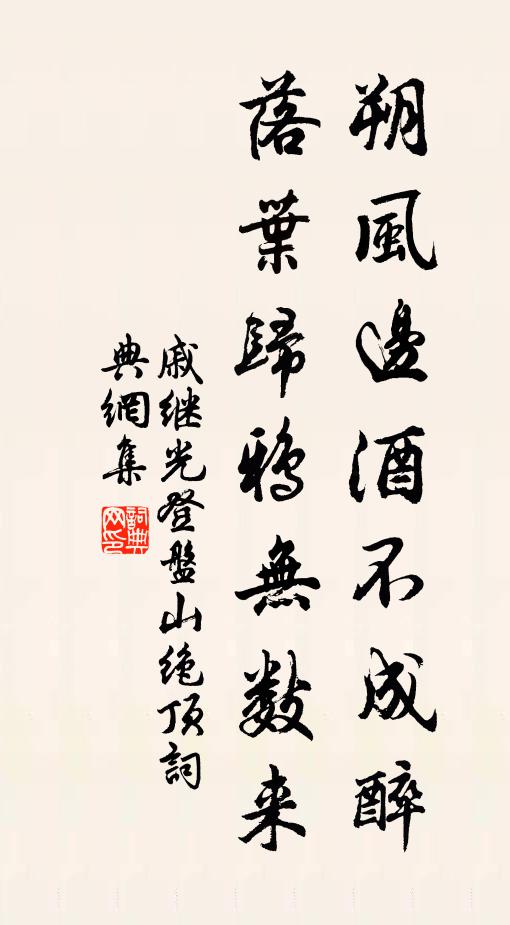 朔風邊酒不成醉
落葉歸鴉無數来
戚继光登盤山绝顶詞
典網集
詞典网印